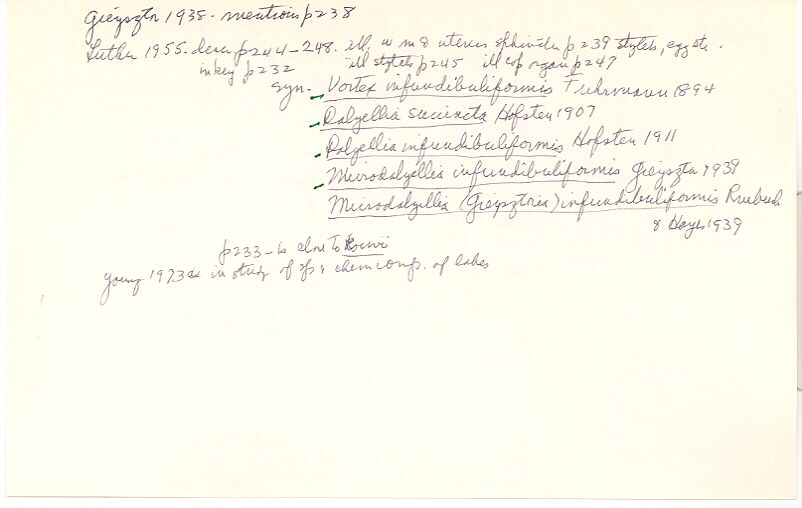 Gieysztor 1938 - mentions p238
Luther 1955. descr p244-248. ill. w m & uterus sphincter p239 stylets, egg etc.
in key p232 ill stylets p245 ill cop organ p247
syn. - Vortex infundibuliformis Fuhrmann 1894
Dalyellia succincta Hofsten 1907
Dalyellia infundibuliformis Hofsten 1911
Microdalyellia infundibuliformis Gieysztor 1939
Microdalyellia (Gieysztoria) infundibuliformis Ruebush
& Hayes 1939
p233 - is close to
Young 1973 in study of sp & chem comp. of lakes